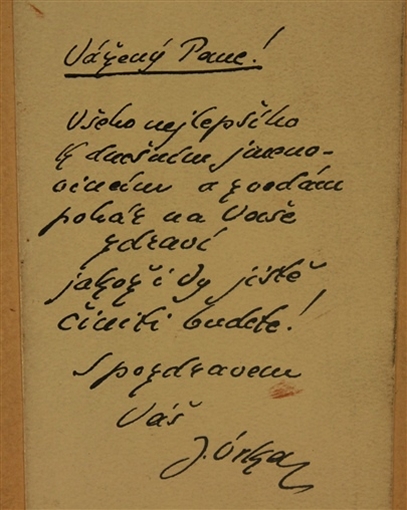 Vážený Pane!
Všeho nejlepšího
k dnešním jmeno-
vinám a zvedám
pohár na Vaše
zdraví
jakož i Vy jistě
činiti budete!
S pozdravem
Váš